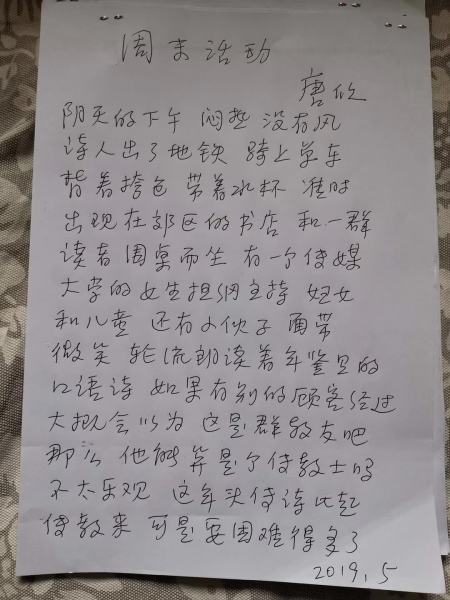 周末活动
唐欣
阴天的下午 闷热 没有风
诗人出了地铁 骑上单车
背着挎包 带着水杯 准时
出现在郊区的书店 和一群
读者围桌而坐 有一个传媒
大学的女生担纲主持 妇女
和儿童 还有小伙子 面带
微笑 轮流朗读着年鉴里的
口语诗 如果有别的顾客经过
大概会以为 这是群教友吧
那么 他能算是个传教士吗
不太乐观 这年头传诗比起
传教来 可是要困难得多了
2019.5